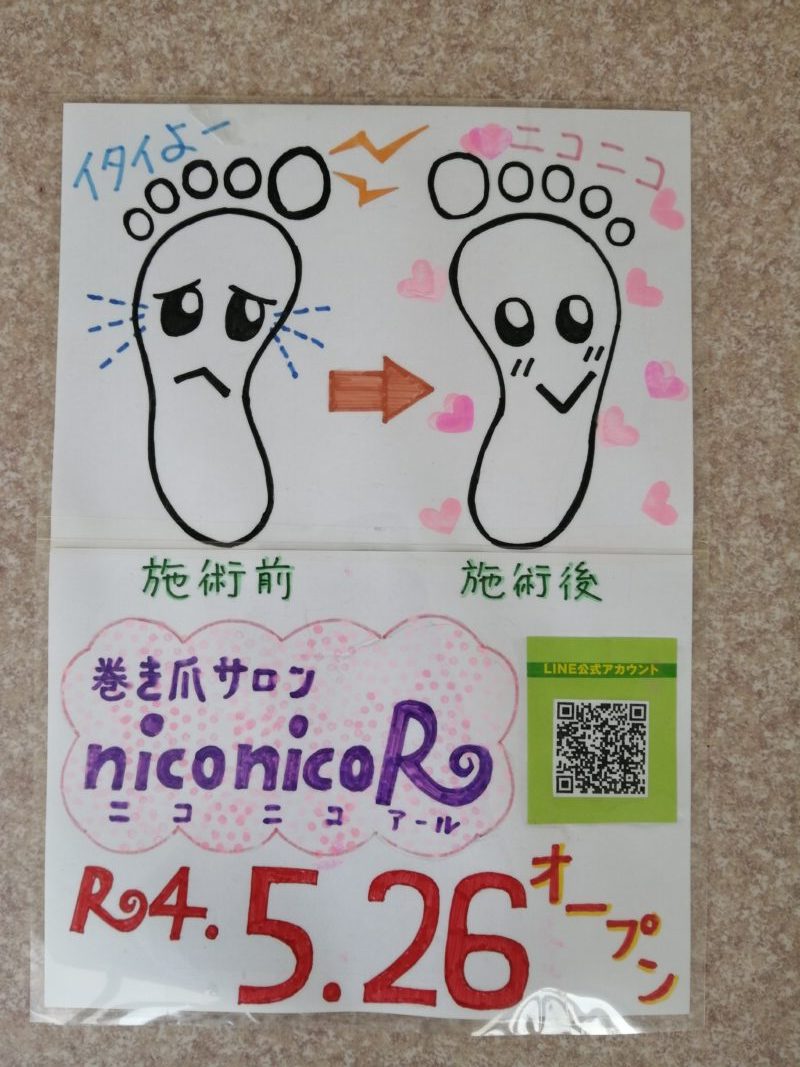 イタイよー
ニコニコ
施術前
施術後
巻き爪サロン
niconicoR
ニコニコアール
LINE公式アカウント
R4.5.26
オープン